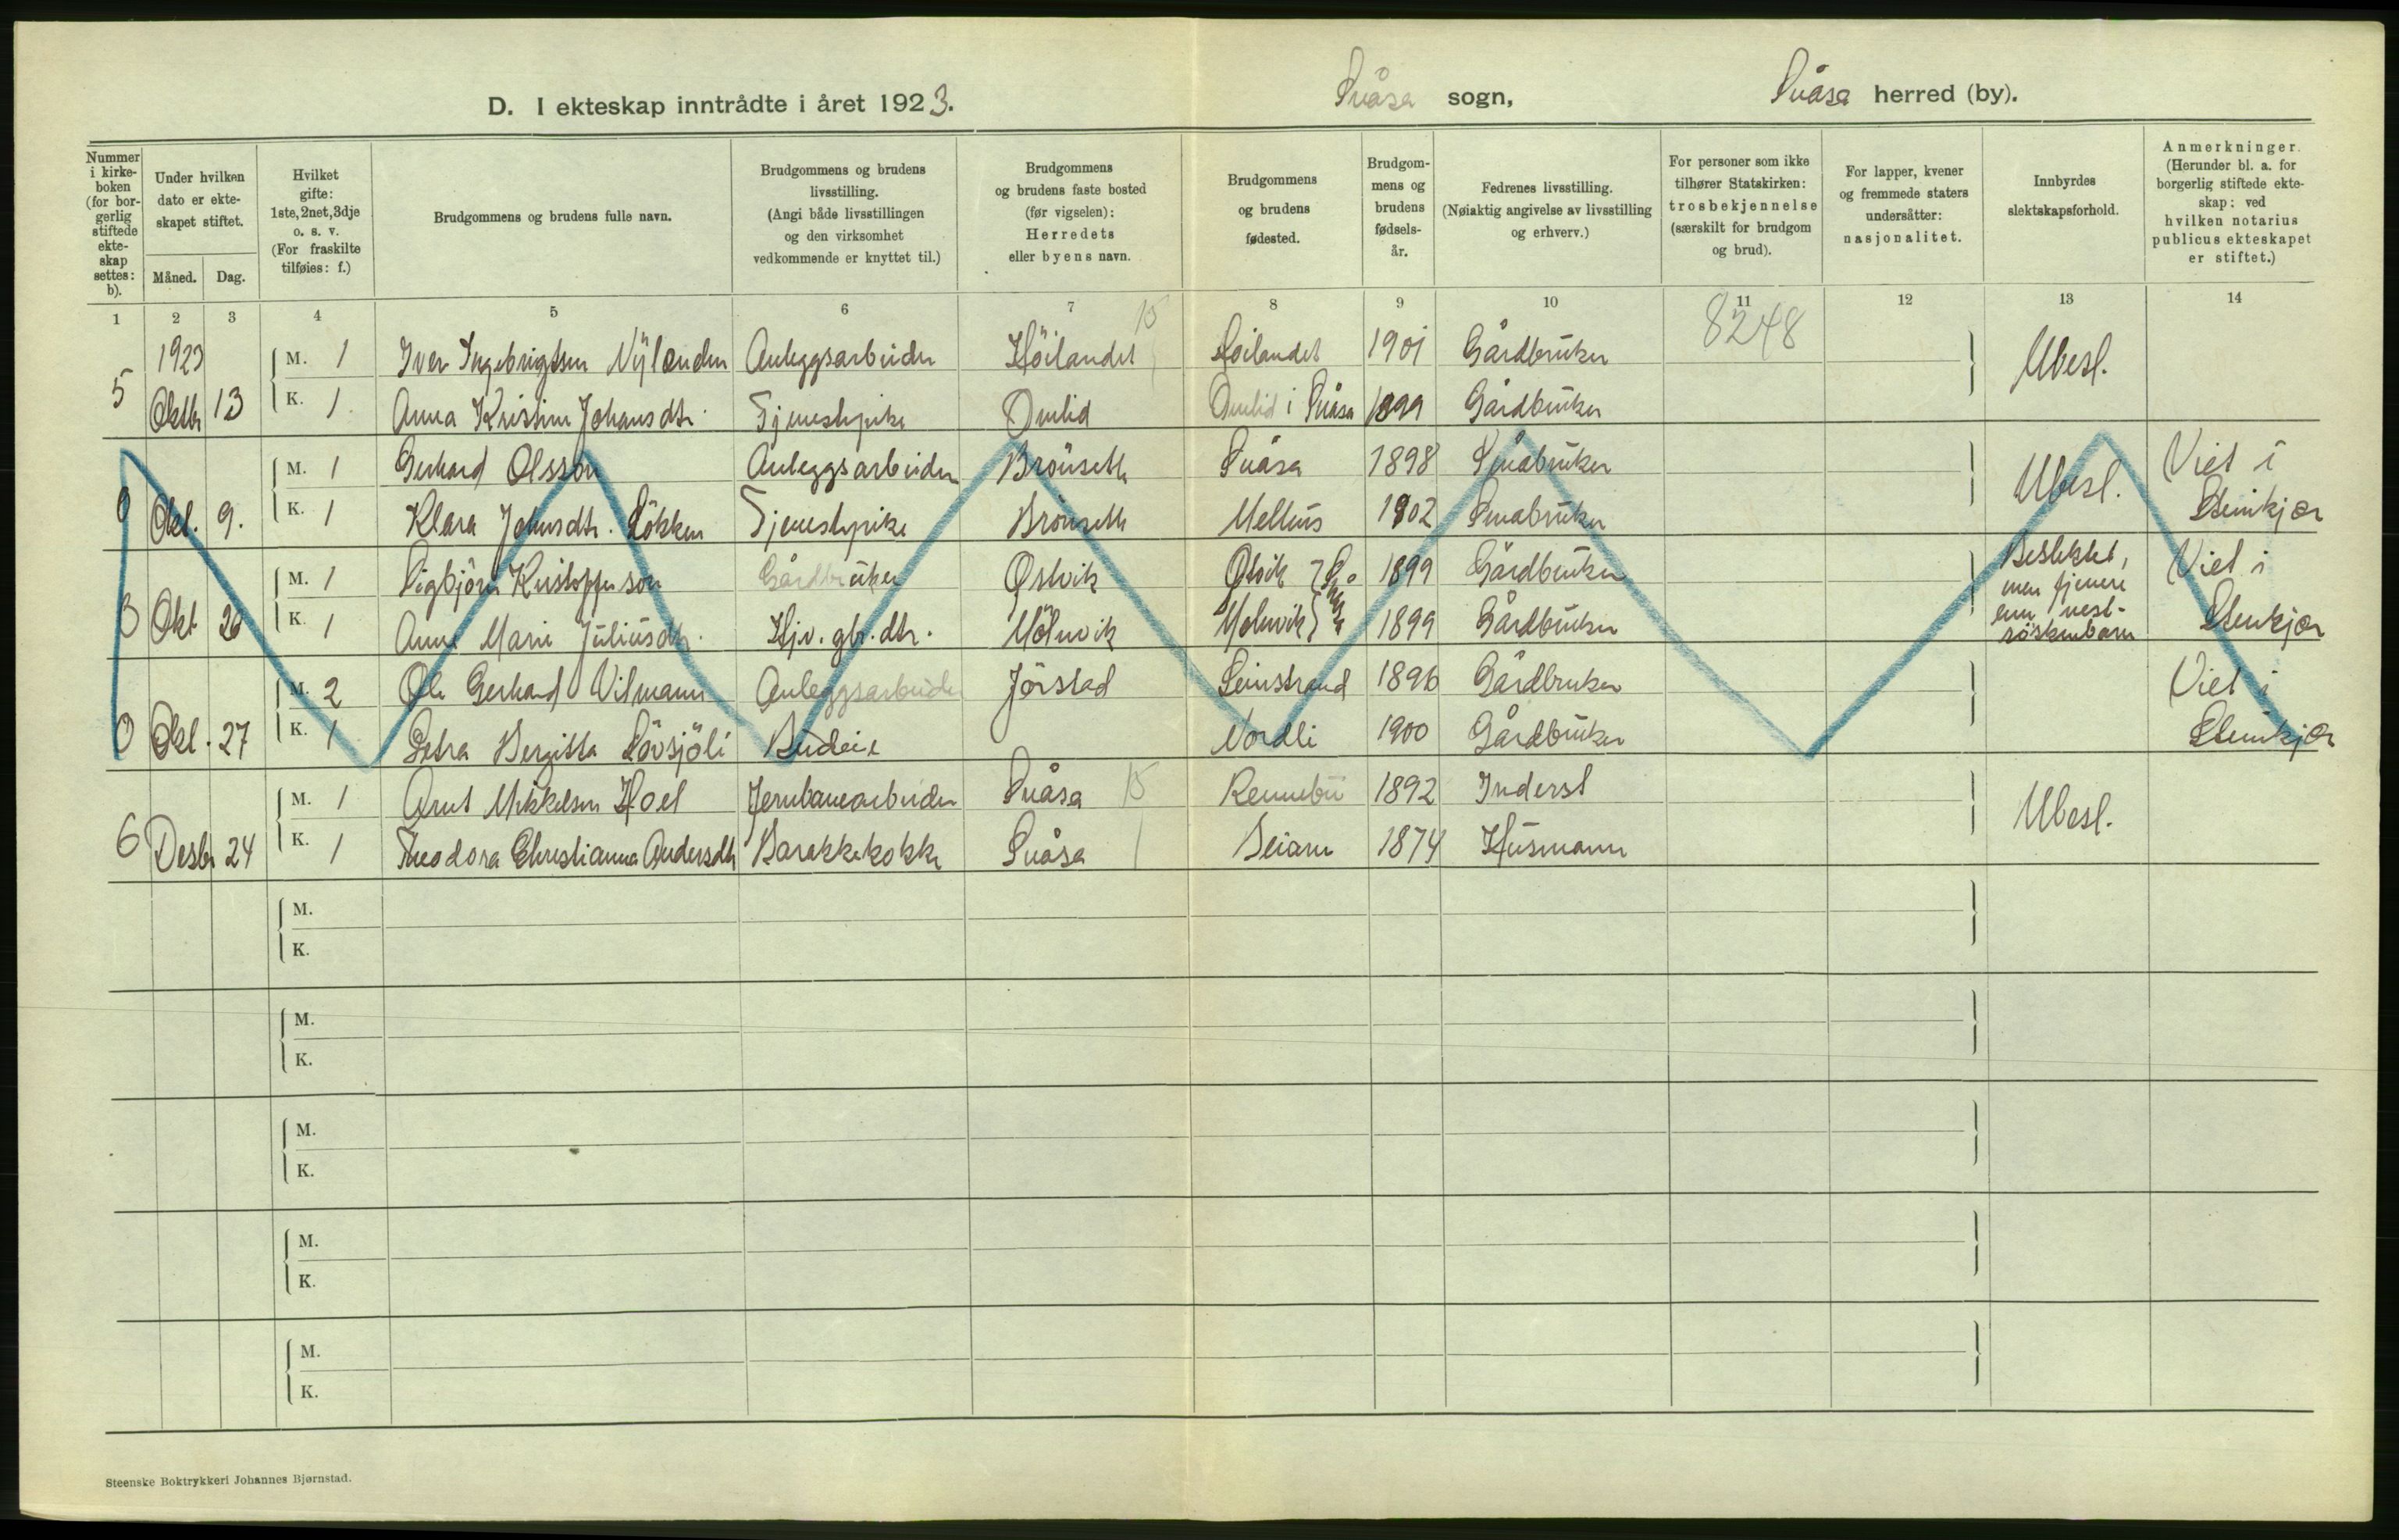 D. I ekteskap inntrådte i året 1923.
Snåsa sogn,
Snåsa herred (by).
Nummer i kirkeboken (for borgerlig stiftede ekteskap settes: b).
Under hvilken dato er ekteskapet stiftet.
Måned. Dag.
Hvilket gifte: 1ste, 2net, 3dje o. s. v. (For fraskilte tilføies: f.)
Brudgommens og brudens fulle navn.
Brudgommens og brudens livsstilling. (Angi både livsstillingen og den virksomhet vedkommende er knyttet til.)
Brudgommens og brudens faste bosted (før vigselen): Herredets eller byens navn.
Brudgommens og brudens fødested.
Brudgommens og brudens fødselsår.
Fedrenes livsstilling. (Nøiaktig angivelse av livsstilling og erhverv.)
For personer som ikke tilhører Statskirken: trosbekjennelse (særskilt for brudgom og brud).
For lapper, kvener og fremmede staters undersåtter: nasjonalitet.
Innbyrdes slektskapsforhold.
Anmerkninger. (Herunder bl. a. for borgerlig stiftede ekteskap: ved hvilken notarius publicus ekteskapet er stiftet.)
1 2 3 4 5 6 7 8 9 10 11 12 13 14
15 8248
1923 M. 1 Iver Ingebrigtsen Nylanden Anleggsarbeider Höilandet Höilandet 1901 Gårdbruker Ubesl.
5 Oktb 13 K. 1. Anna Kristine Johansdtr. Tjenestepike Omlid Omlid i Snåsa 1899 Gårdbruker
M. 1 Gerhard Olsson Anleggsarbeider Brönseth Snåsa 1898 Småbruker Ubesl. Viet i
9 Okt. 9. K. 1 Klara Johnsdtr. Lökken Tjenestepike Brönseth Melhus 1902 Småbruker Steinkjær
M. 1 Sigbjörn Kristoffersön Gårdbruker Østvik Østvik 1899 Gårdbruker Beslektet, Viet i
men fjernere
3 Okt 20 K. 1 Anna Marie Juliusdtr. Hjv. gbr. dtr. Mölnvik Molnvik 1899 Gårdbruker enn nest- Steinkjær
söskenbarn
M. 2 Ole Gerhard Vilmann Anleggsarbeider Jörstad Leinstrand 1896 Gårdbruker Viet i
0 Okt. 27 K. 1 Petra Bergitta Lövsjöli Budeie Nordli 1900 Gårdbruker Steinkjær
M. 1 Arnt Mikkelsen Hoel Jernbanearbeider Snåsa 15 Rennebu 1892 Inderst Ubesl.
6 Desbr 24 K. 1 Theodora Christianna Andersdtr Barakkekokke Snåsa 1 Beiarn 1874 Husmann
M.
K.
M.
K.
M.
K.
M.
K.
M.
K.
Steenske Boktrykkeri Johannes Bjørnstad.